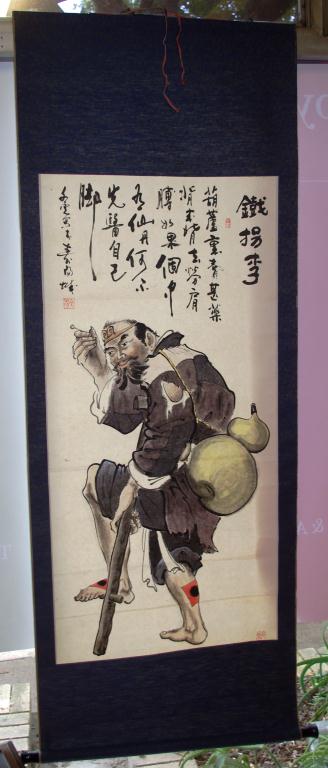 鐵拐李
葫蘆裏賣甚藥
背來背去勞肩
膊如果個中
有仙丹何不
先醫自己
脚